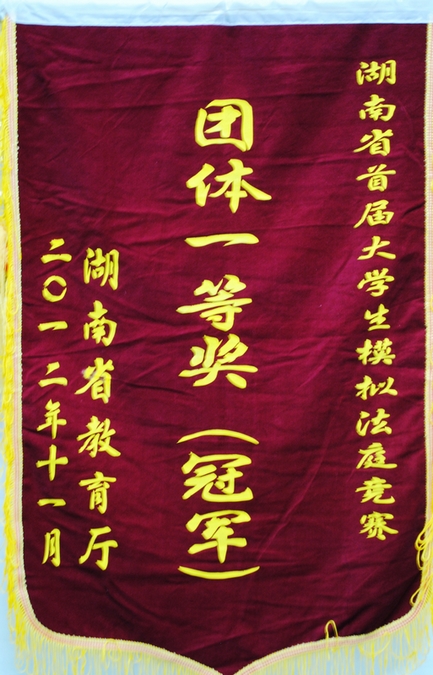 湖南省首届大学生模拟法庭竞赛
团体一等奖（冠军）
湖南省教育厅
二〇一二年十一月